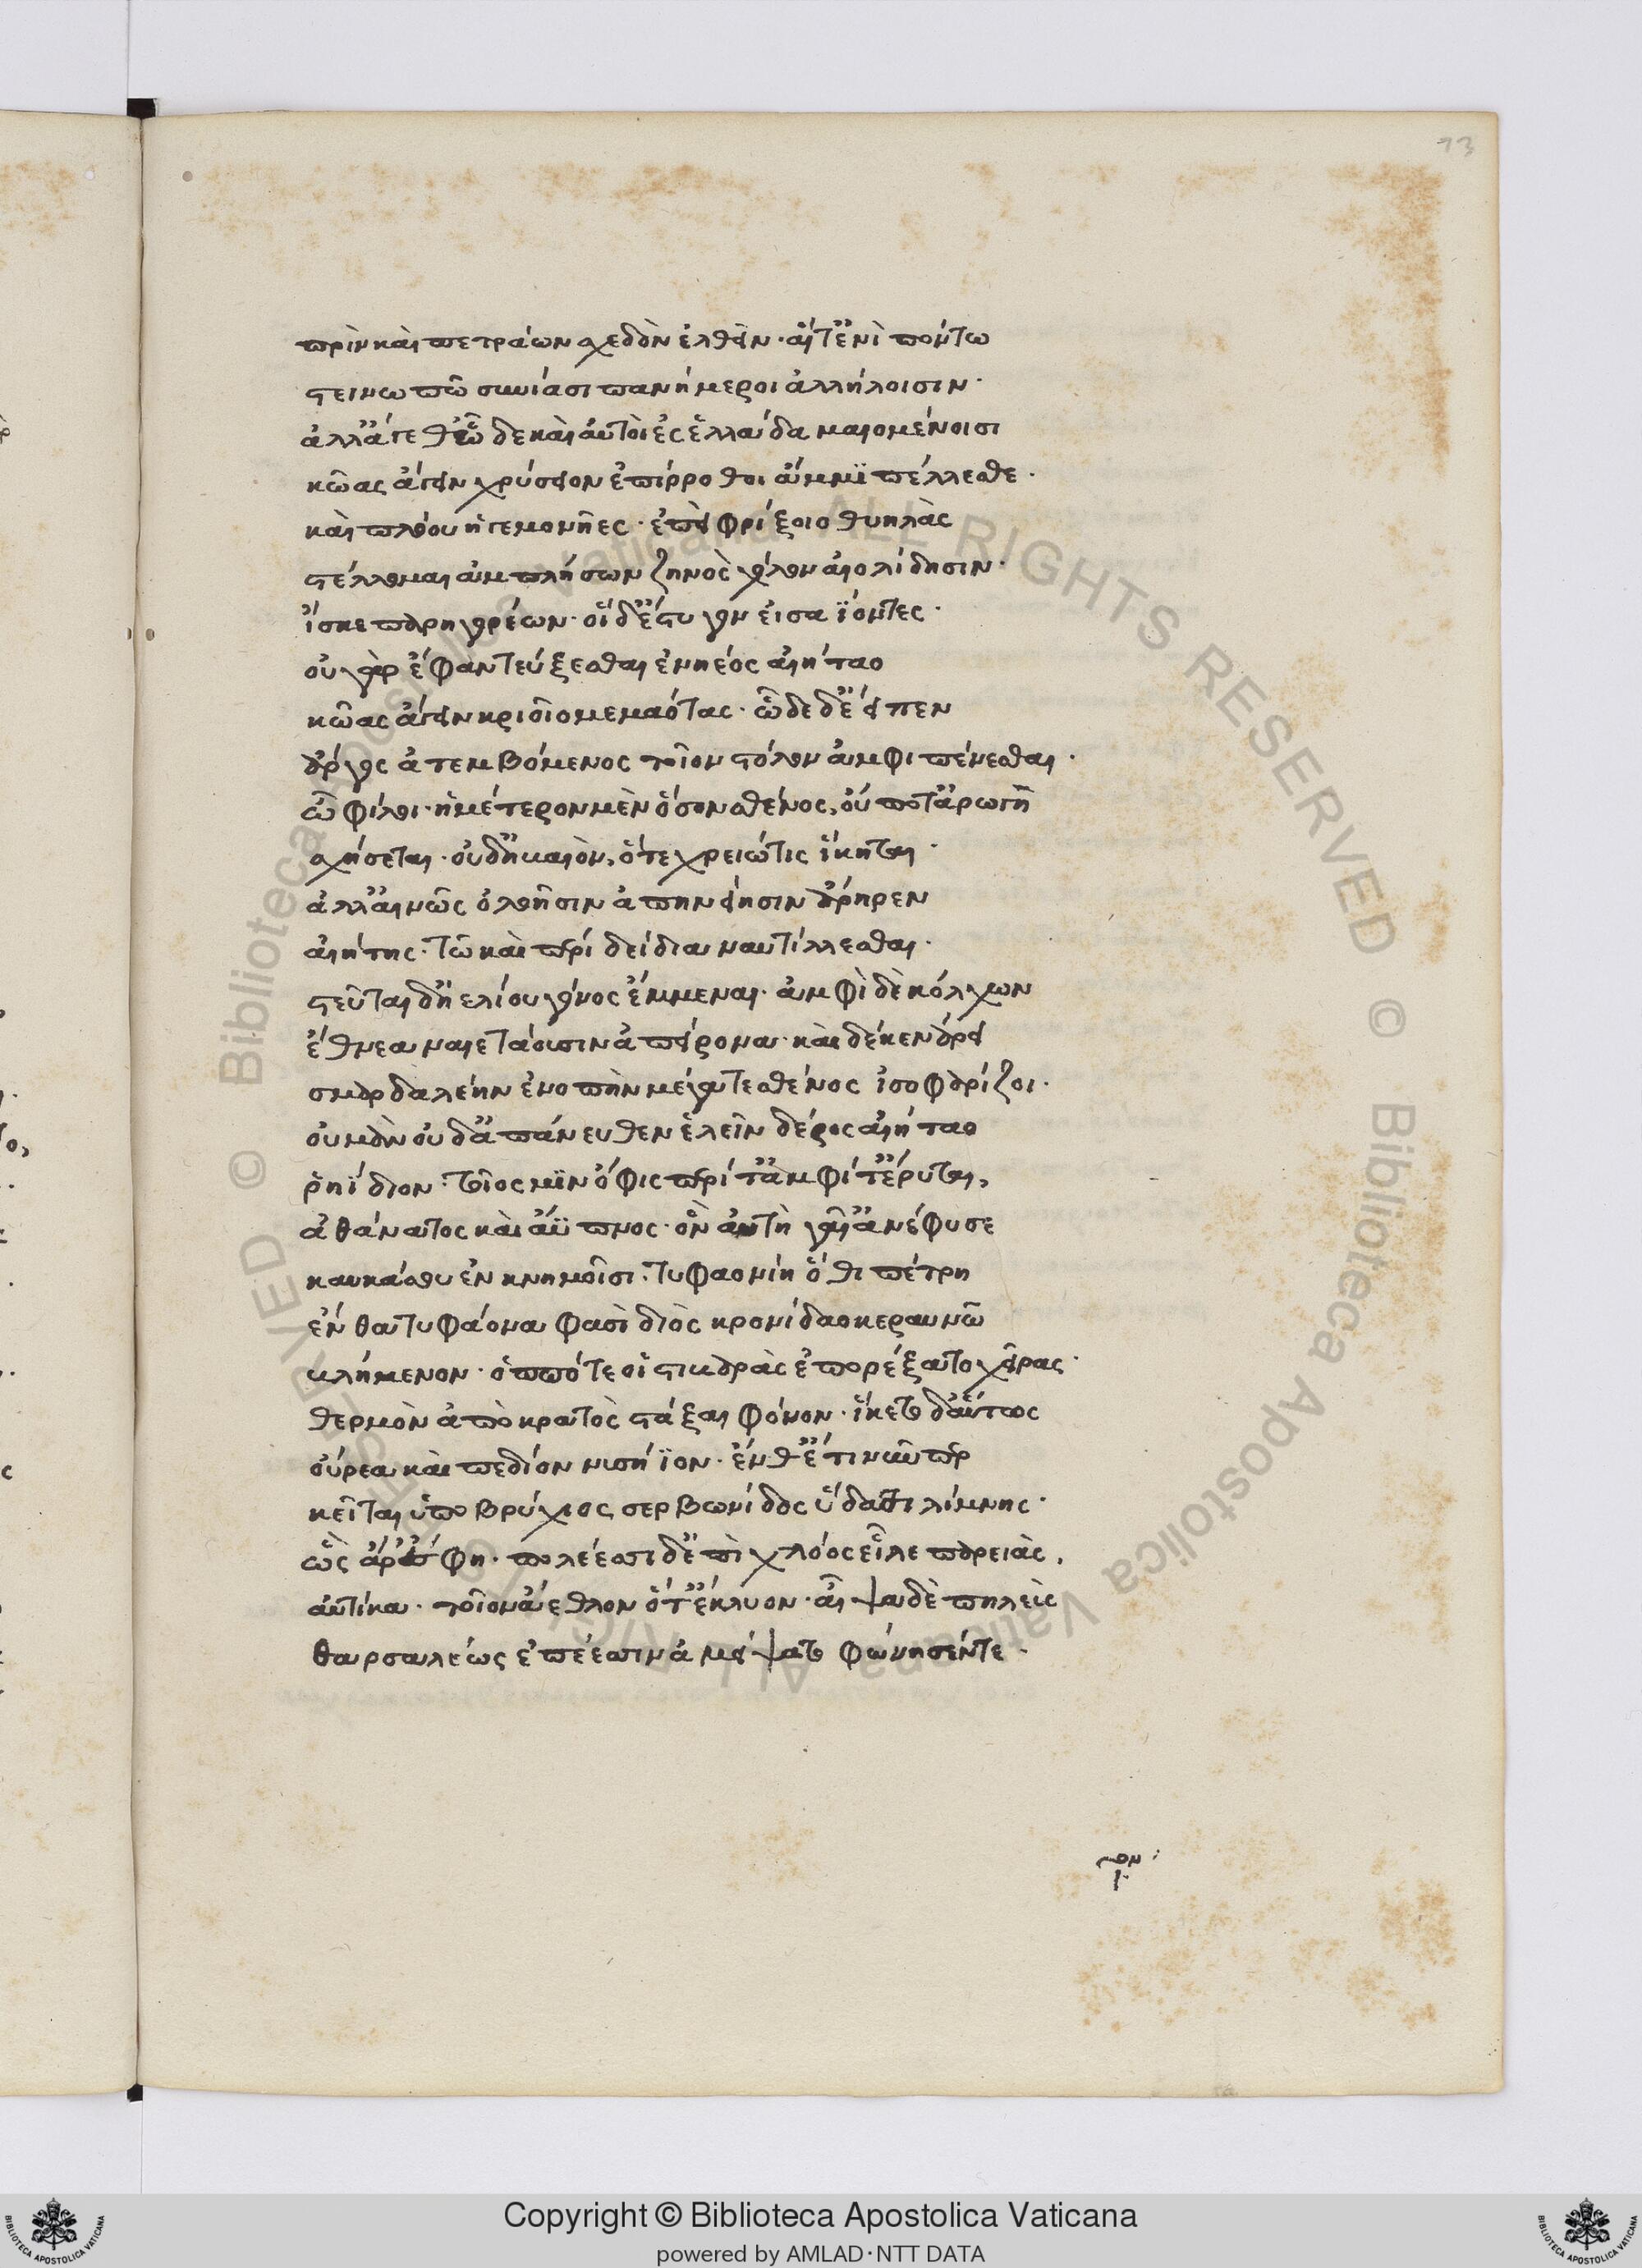 73
πρὶν καὶ πετράων σχεδὸν ἐλθεῖν· αἵτ' ἐνὶ πόντω
στεινωπῶ συνίασι πανήμεροι ἀλλήλοισιν·
ἀλλ' ἄγεθ' ὧδε καὶ αὐτοὶ ἐς ἑλλάδα μαιομένοισι
κῶας ἄγειν χρύσειον ἐπίρροθοι ἄμμι πέλεσθε·
καὶ πλόου ἡγεμονῆες· ἐπεὶ φρίξοιο θυηλὰς
στέλλομαι ἀμπλήσων ζηνὸς χόλον αἰολίδησιν·
ἴσκε παρηγορέων· οἱ δ' ἔστυγον εἰσαΐοντες·
οὐ γὰρ ἔφαν τεύξεσθαι ἐνηέος αἰήταο
κῶας ἄγειν κριοῖο μεμαότας· ὧδε δ' ἔειπεν
ἄργος ἀτεμβόμενος τοῖον στόλον ἀμφιπένεσθαι·
ὦ φίλοι· ἡμέτερον μὲν ὅσον σθένος, οὔ ποτ' ἀρωγῆ
σχήσεται· οὐδ' ἠβαιὸν, ὅτε χρειώ τις ἵκηται·
ἀλλ' αἰνῶς ὀλοῆσιν ἀπηνείησιν ἄρηρεν
αἰήτης· τῶ καὶ περί δείδια ναυτίλλεσθαι·
στεῦται δ' ἠελίου γόνος ἔμμεναι· ἀμφὶ δὲ κόλχων
ἔθνεα ναιετάουσιν ἀπείρονα· καὶ δέ κεν ἄρει
σμερδαλέην ἐνοπὴν μέγα τε σθένος ἰσοφαρίζοι·
οὐ μὰν οὐδ' ἀπάνευθεν ἑλεῖν δέρος αἰήταο
ῥηΐδιον· τοῖός μιν ὄφις περί τ' ἀμφί τ' ἔρυται,
ἀθάνατος καὶ ἄϋπνος· ὃν αὐτὴ γαῖ' ἀνέφυσε
καυκάσου ἐν κνημοῖσι· τυφαονίη ὅθι πέτρη
ἔνθα τυφάονα φασὶ διὸς κρονίδαο κεραυνῶ
βλήμενον· ὁππότε οἱ στιβαρὰς ἐπορέξατο χεῖρας·
θερμὸν ἀπὸ κρατὸς στάξαι φόνον· ἵκετο δ' αὔτως
οὔρεα καὶ πεδίον νισήϊον· ἔνθ' ἔτι νῦν περ
κεῖται ὑποβρύχιος σερβωνίδος ὕδασι λίμνης·
ὣς ἄρ' ἔφη· πολέεσσι δ' ἐπὶ χλόος εἷλε παρειὰς,
αὐτίκα· τοῖον ἄεθλον ὅτ' ἔκλυον· αἶψα δὲ πηλεὺς
θαρσαλέως ἐπέεσσιν ἀμείψατο φώνησέν τε·
Copyright © Biblioteca Apostolica Vaticana
powered by AMLAD·NTT DATA